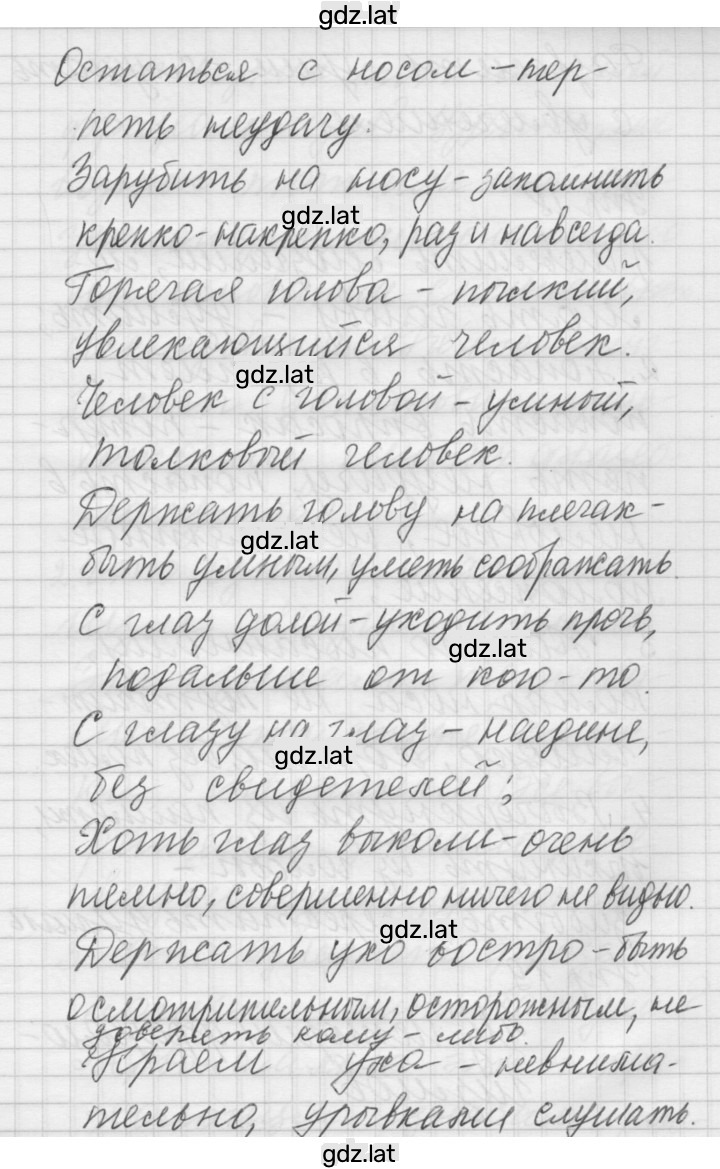 gdz.lat
Остаться с носом - тер-
петь неудачу.
Зарубить на носу - запомнить
gdz.lat
крепко-накрепко, раз и навсегда.
Горячая голова - пылкий,
увлекающийся человек.
gdz.lat
Человек с головой - умный,
толковый человек.
Держать голову на плечах -
gdz.lat
быть умным, уметь соображать.
С глаз долой - уходить прочь,
gdz.lat
подальше от кого-то.
С глазу на глаз - наедине,
gdz.lat
без свидетелей;
Хоть глаз выколи - очень
темно, совершенно ничего не видно.
gdz.lat
Держать ухо востро - быть
осмотрительным, осторожным, не
доверять кому-либо.
Краем уха - невнима-
тельно, урывками слушать.
gdz.lat